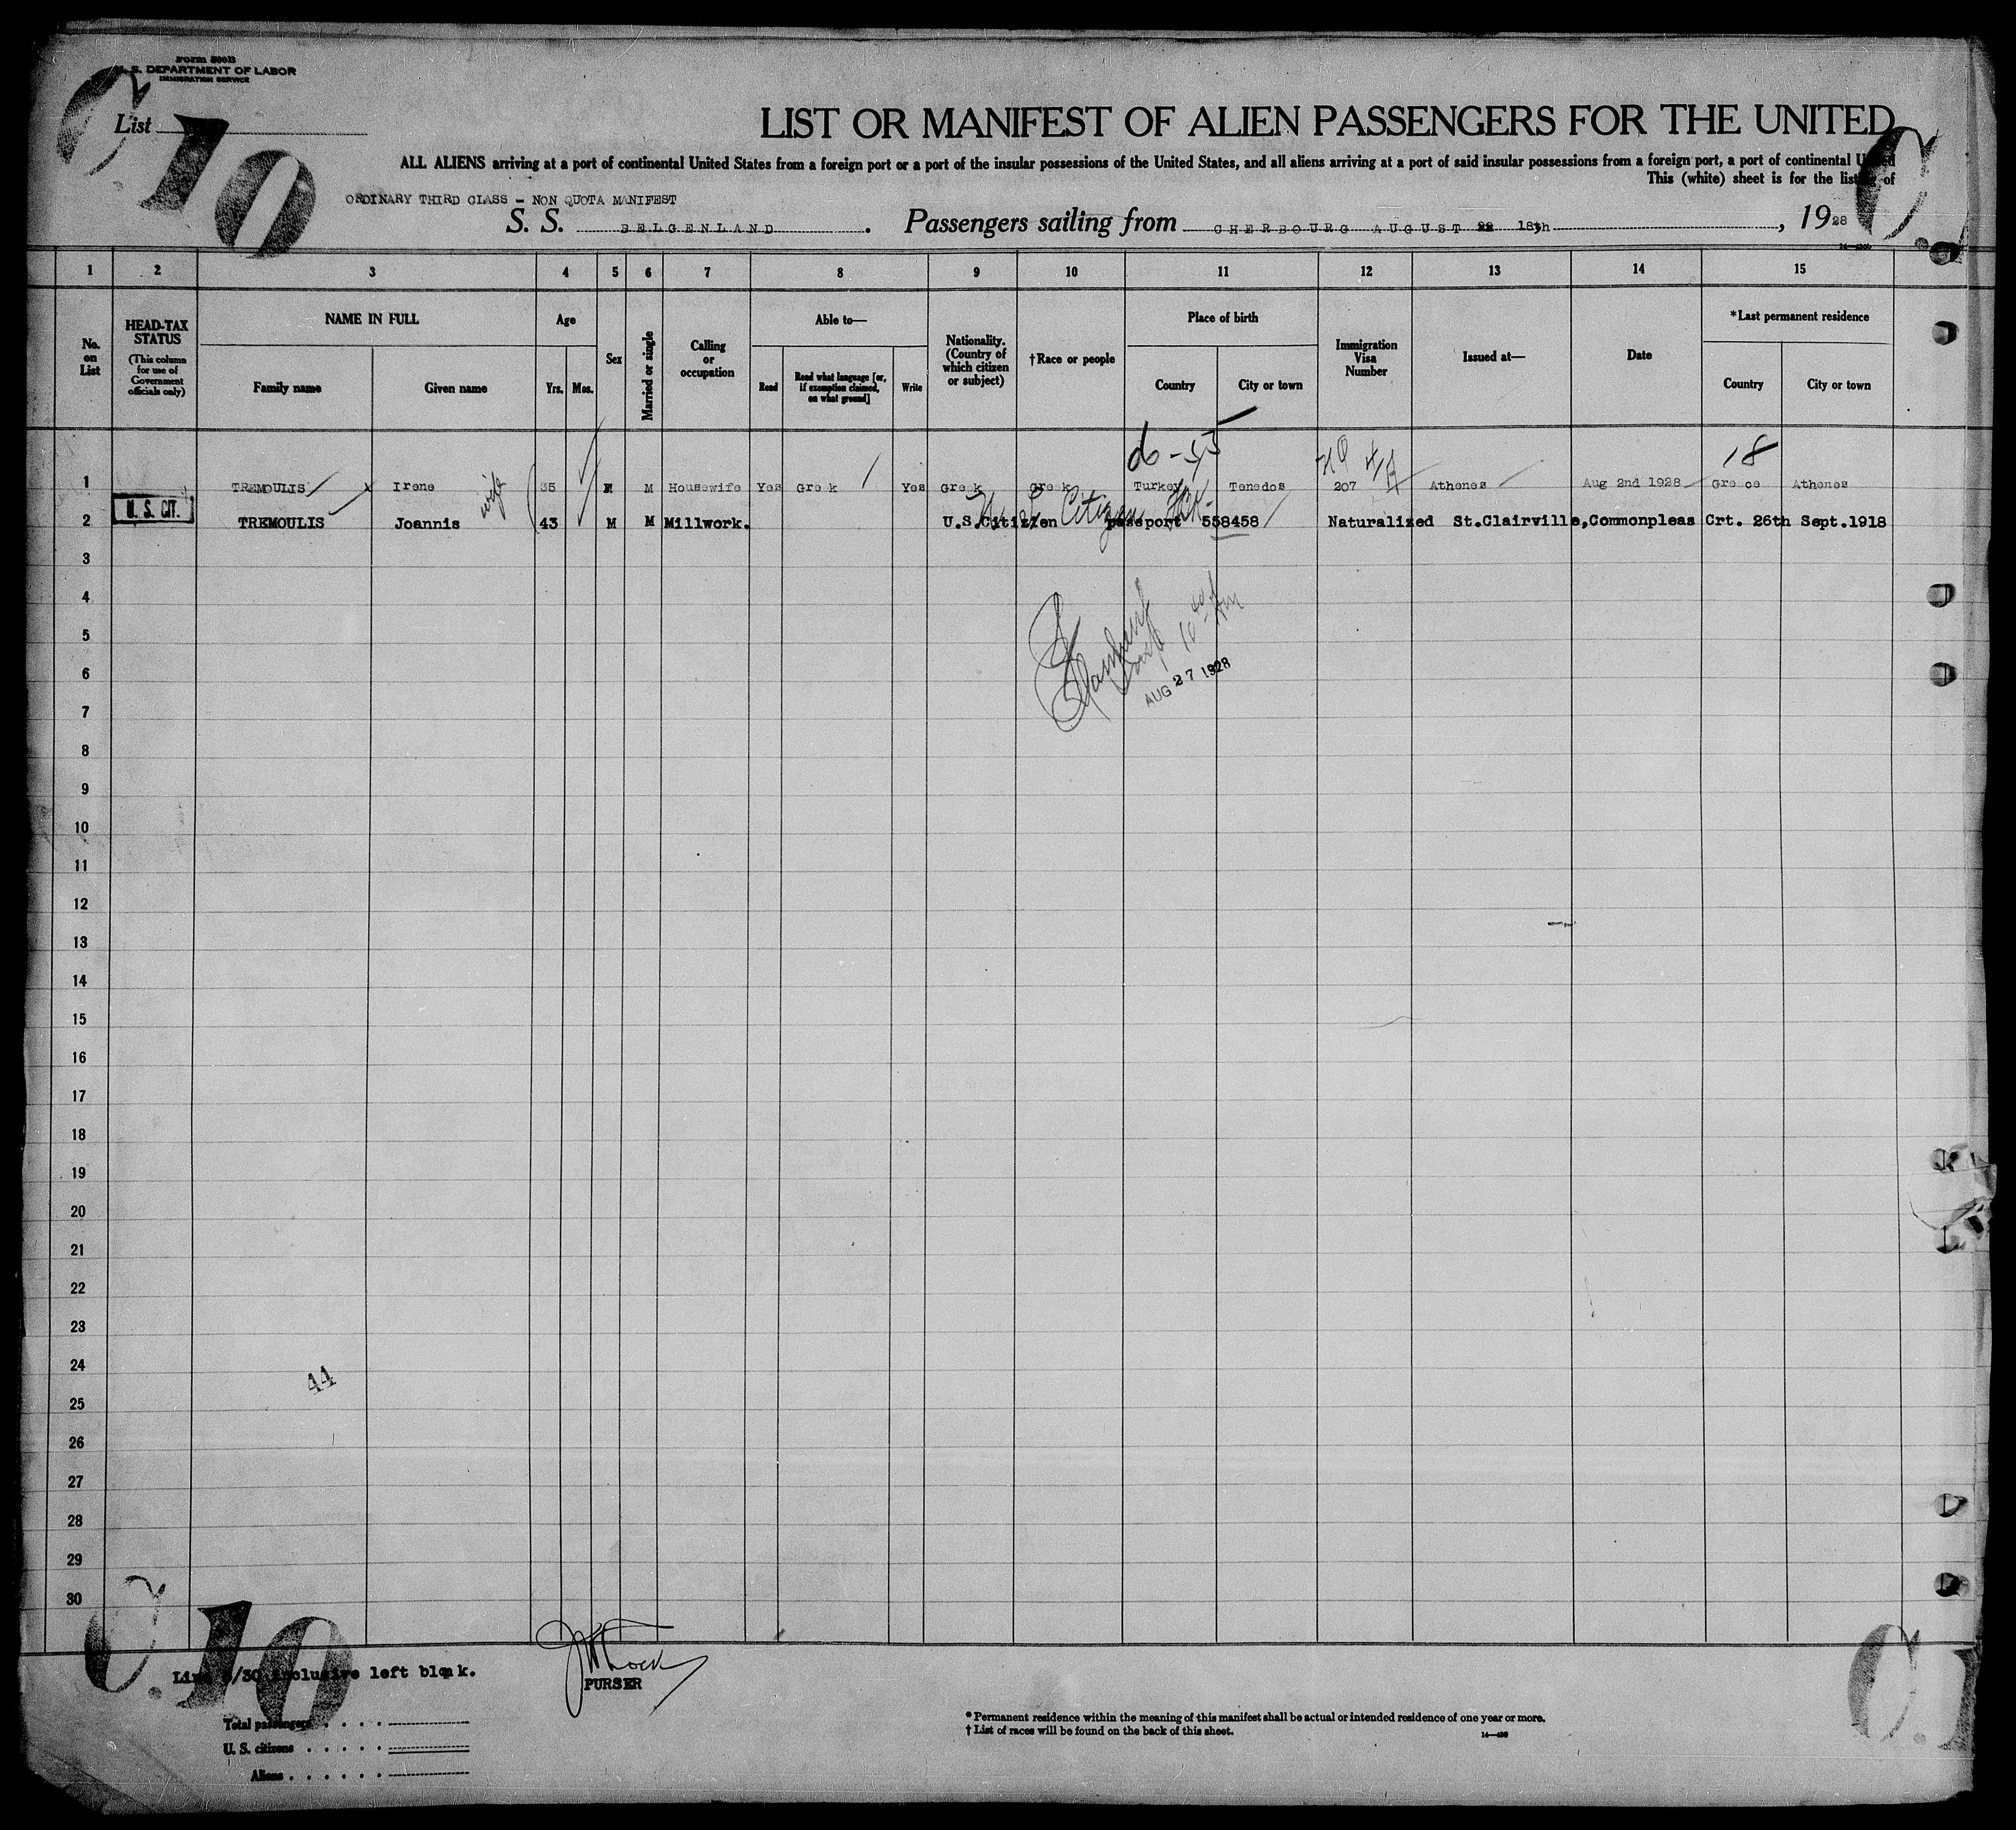 Form 500B
U. S. DEPARTMENT OF LABOR
IMMIGRATION SERVICE
List
10
LIST OR MANIFEST OF ALIEN PASSENGERS FOR THE UNITED
ALL ALIENS arriving at a port of continental United States from a foreign port or a port of the insular possessions of the United States, and all aliens arriving at a port of said insular possessions from a foreign port, a port of continental United
This (white) sheet is for the listing of
ORDINARY THIRD CLASS - NON QUOTA MANIFEST
S. S. BELGENLAND. Passengers sailing from CHERBOURG AUGUST 22 18th, 1928
1 2 3 4 5 6 7 8 9 10 11 12 13 14 15
No. on List
HEAD-TAX STATUS
(This column for use of Government officials only)
NAME IN FULL
Family name
Given name
Age
Yrs.
Mos.
Sex
Married or single
Calling or occupation
Able to—
Read
Read what language [or, if exemption claimed, on what ground]
Write
Nationality. (Country of which citizen or subject)
†Race or people
Place of birth
Country
City or town
Immigration Visa Number
Issued at—
Date
*Last permanent residence
Country
City or town
18
1 TREMOULIS Irene wife 35 F M Housewife Yes Greek Yes Greek Greek Turkey Tenedos 207 Athenes Aug 2nd 1928 Greece Athenes
U. S. CIT.
U.S. Citizen
2 TREMOULIS Joannis 43 M M Millwork. U.S.Citizien passport 558458 Naturalized St.Clairville,Commonpleas Crt. 26th Sept.1918
3
4
5
6
AUG 27 1928
7
8
9
10
11
12
13
14
15
16
17
18
19
20
21
22
23
24
44
25
26
27
28
29
30
10
Line 3/30 inclusive left blank.
PURSER
Total passengers
U. S. citizens
Aliens
* Permanent residence within the meaning of this manifest shall be actual or intended residence of one year or more.
† List of races will be found on the back of this sheet.